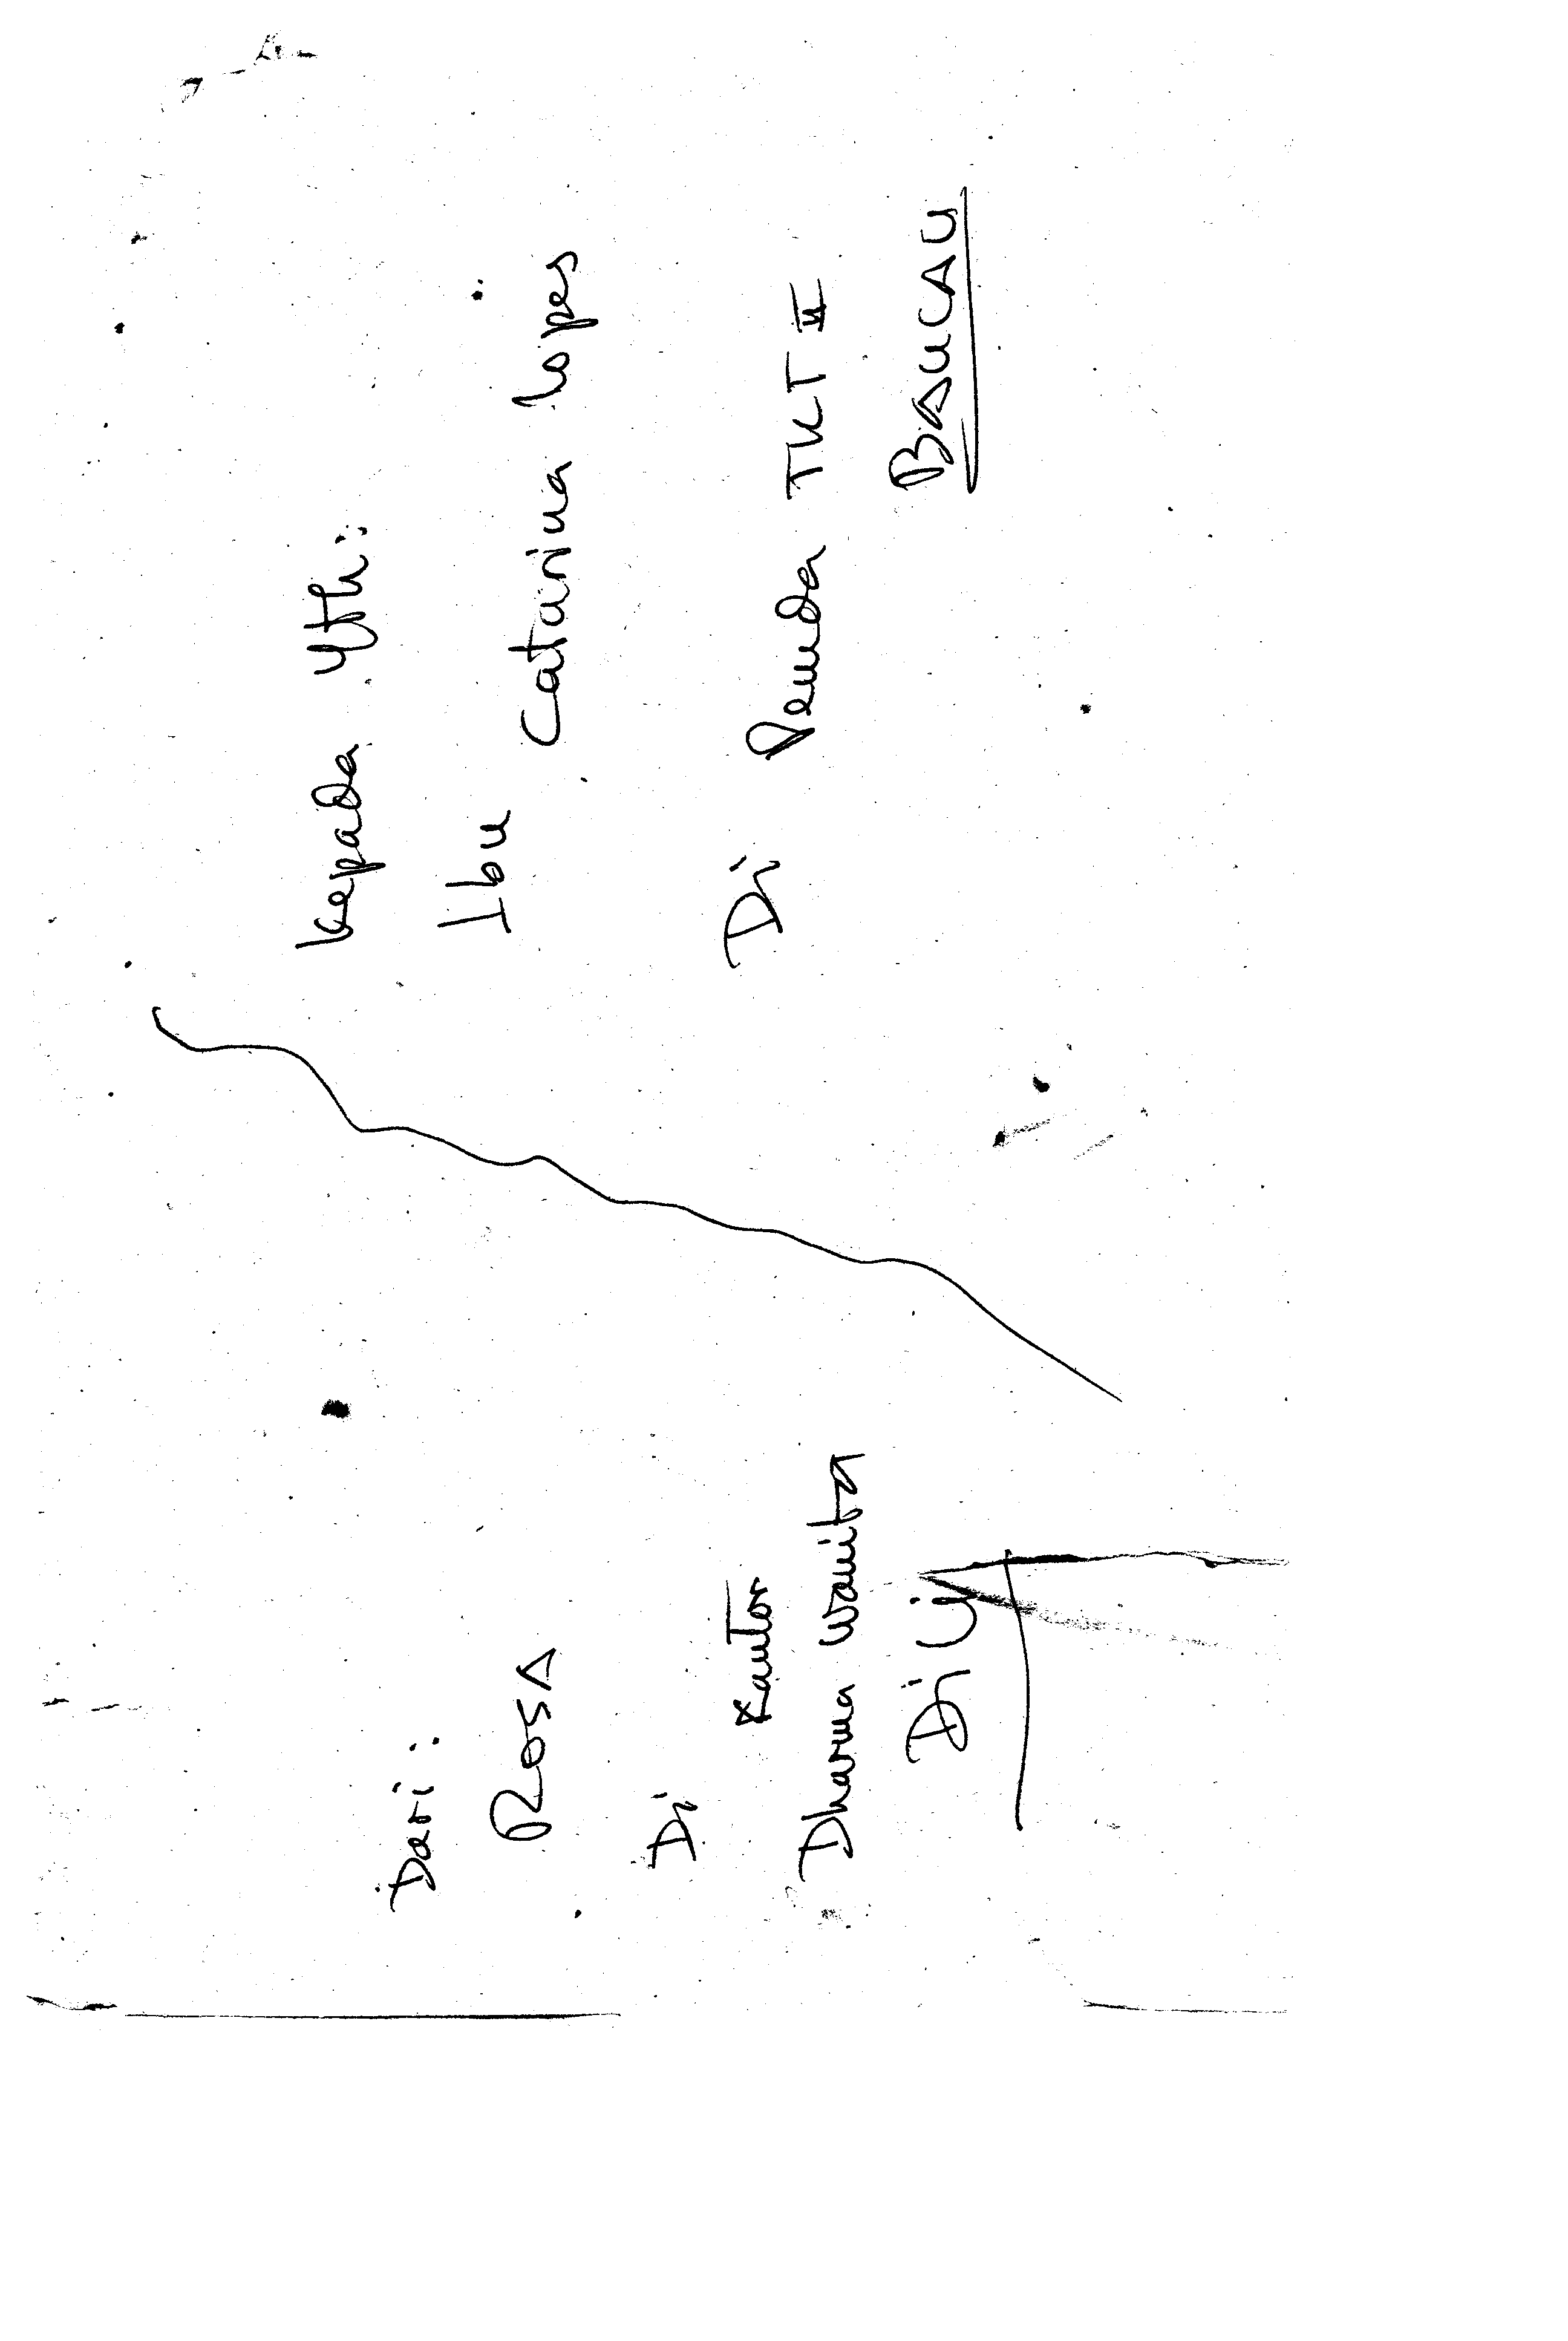 Dari:
Rosa
Di
Kantor
Dharma Wanita
Dili
Kepada Yth:
Ibu Catarina Lopes
Di Pemda TKT II
BAUCAU